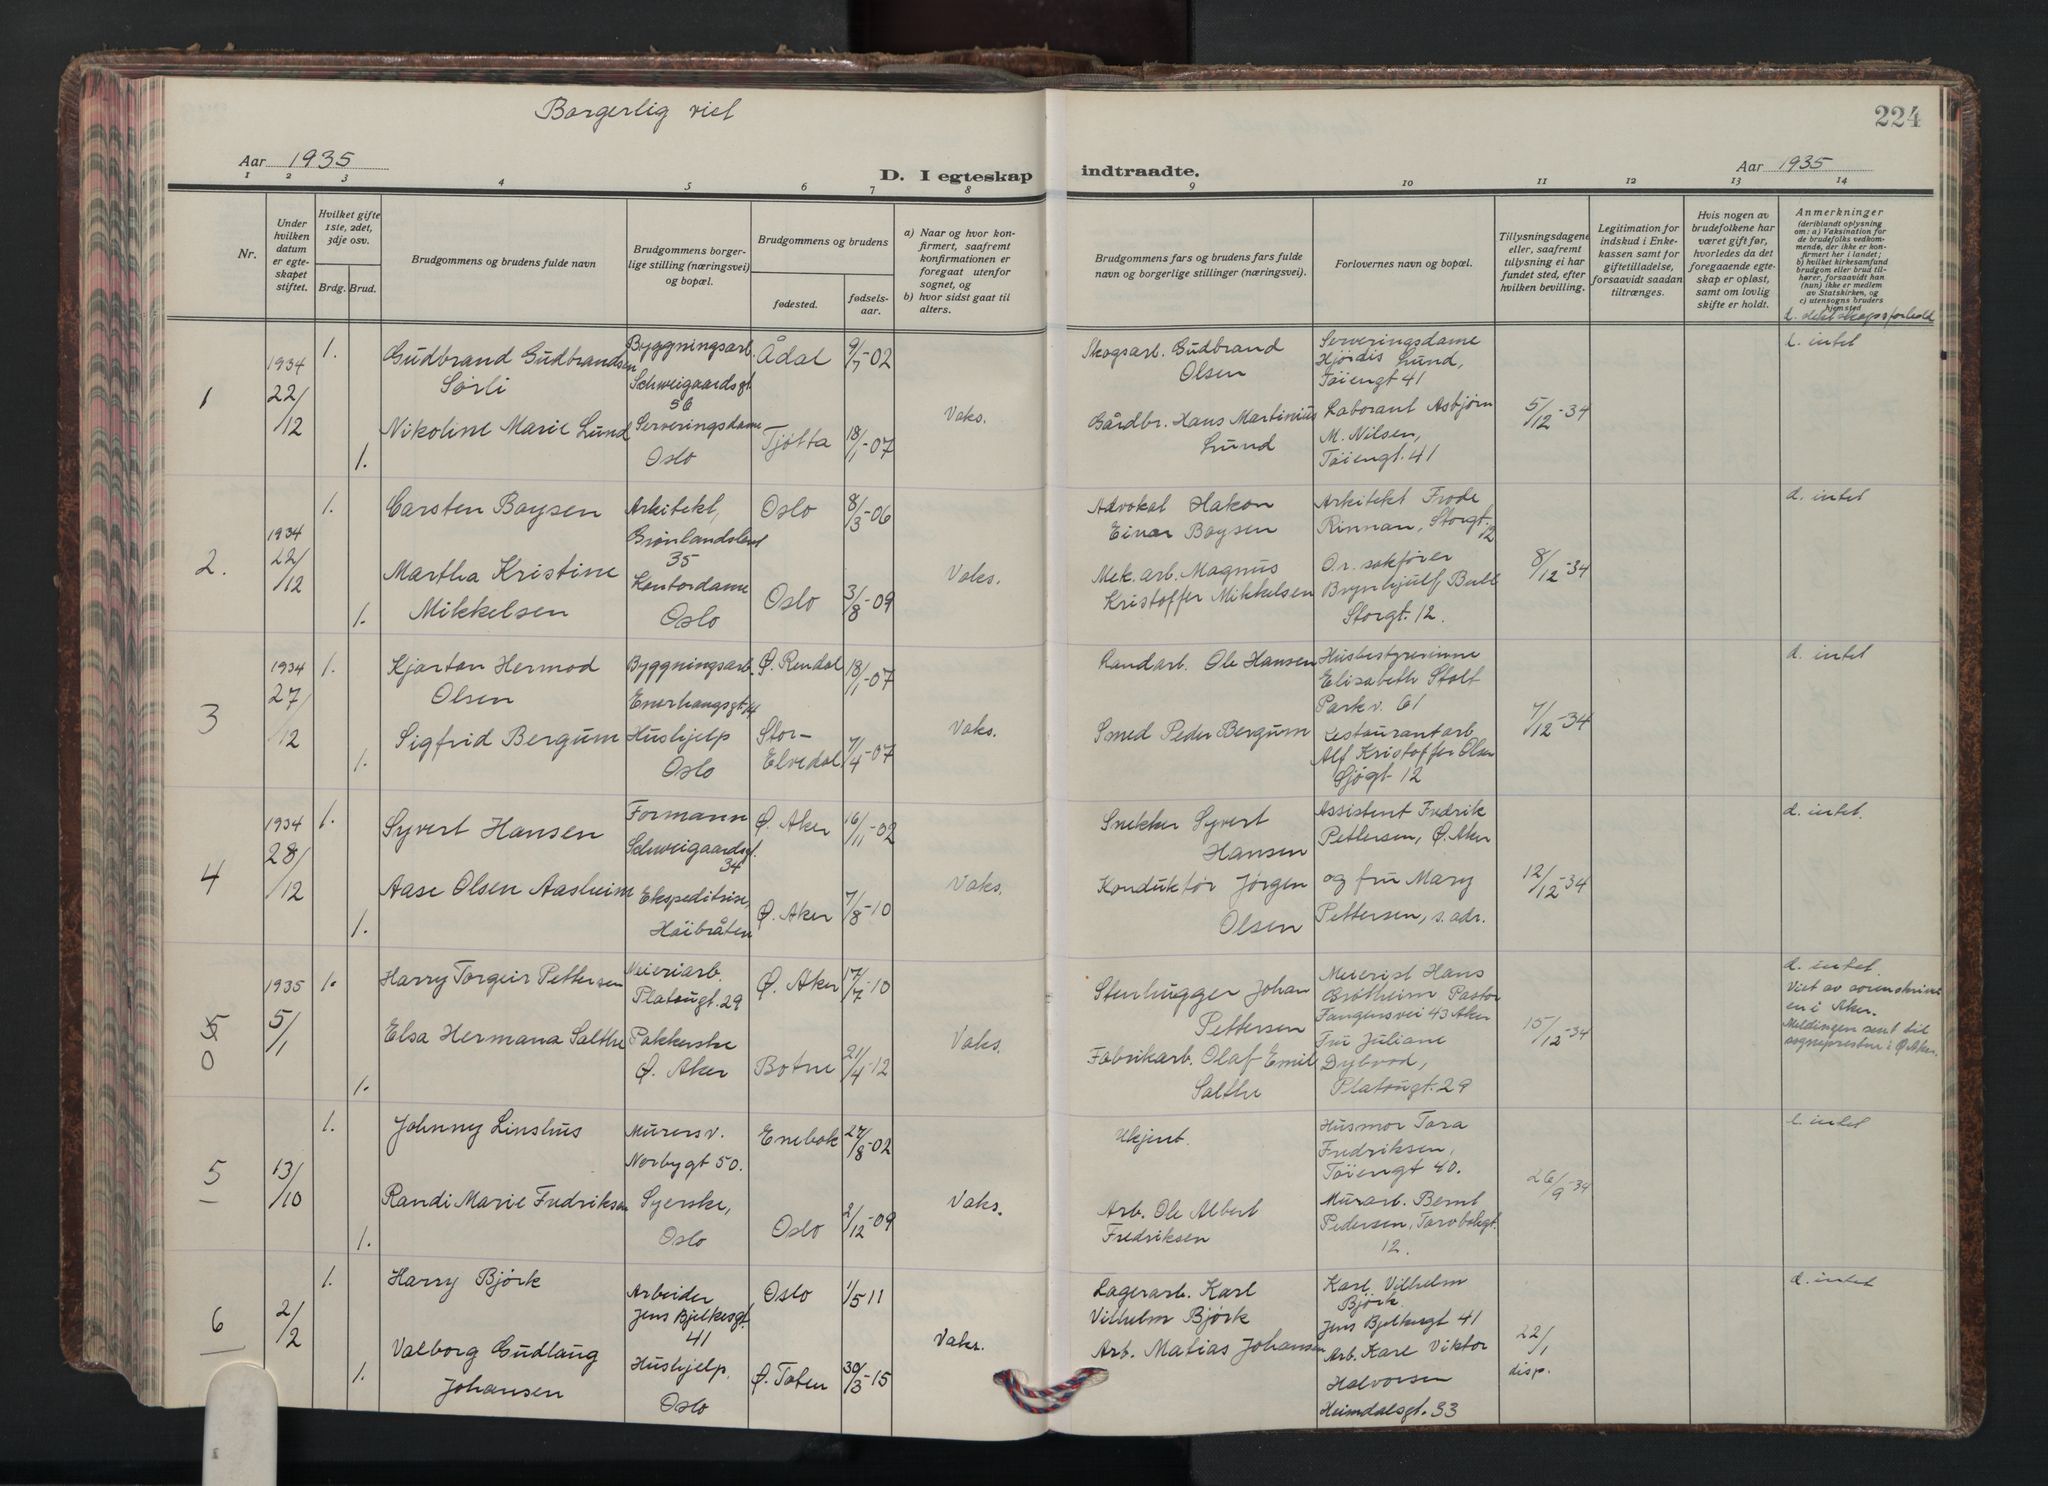 Borgerlig viet
224
Aar 1935
D. I egteskap
indtraadte.
Aar 1935
1 2 3 4 5 6 7 8 9 10 11 12 13 14
Nr.
Under hvilken datum er egteskapet stiftet.
Hvilket gifte 1ste, 2det, 3dje osv.
Brdg. Brud.
Brudgommens og brudens fulde navn
Brudgommens borgerlige stilling (næringsvei) og bopæl.
Brudgommens og brudens
fødested.
fødselsaar.
a) Naar og hvor konfirmert, saafremt konfirmationen er foregaat utenfor sognet, og
b) hvor sidst gaat til alters.
Brudgommens fars og brudens fars fulde navn og borgerlige stillinger (næringsvei).
Forlovernes navn og bopæl.
Tillysningsdagene eller, saafremt tillysning ei har fundet sted, efter hvilken bevilling.
Legitimation for indskud i Enkekassen samt for giftetilladelse, forsaavidt saadan tiltrænges.
Hvis nogen av brudefolkene har været gift før, hvorledes da det foregaaende egteskap er opløst, samt om lovlig skifte er holdt.
Anmerkninger
(deriblandt oplysning om: a) Vaksination for de brudefolks vedkommende, der ikke er konfirmert her i landet; b) hvilket kirkesamfund brudgom eller brud tilhører, forsaavidt han (hun) ikke er medlem av Statskirken, og c) utensogns bruders hjemsted
1
1934
22/12
1.
Gudbrand Gudbrandsen
Sørli
Byggningsarb.
Schweigaardsgt
56
Ådal
9/7-02
1.
Nikoline Marie Lund
Serveringsdame
Oslo
Tjøtta
18/1-07
Vaks.
Skogsarb. Gudbrand
Olsen
Gårdbr. Hans Martinius
Lund
Serveringsdame
Hjørdis Lund,
Tøiengt 41
Laborant Asbjørn
M. Nilsen,
Tøiengt. 41
5/12-34
d. intet
2.
1934
22/12
1.
Carsten Boysen
Arkitekt,
Grønlandsleret
35
Oslo
8/3-06
1.
Martha Kristine
Mikkelsen
Kontordame
Oslo
Oslo
3/8-09
Vaks.
Advokat Hakon
Einar Boysen
Mek. arb. Magnus
Kristoffer Mikkelsen
Arkitekt Frode
Rinnan, Storgt.
12
O.r. sakfører
Brynhjulf Bull
Storgt. 12.
8/12-34
d. intet
3
1934
27/12
1.
Kjartan Hermod
Olsen
Byggningsarb.
Enerhaugsgt 14
Ø. Rendal
18/1-07
1.
Sigfrid Bergum
Hushjelp
Oslo
Stor-
Elvedal
7/4-07
Vaks.
Randarb. Ole Hansen
Smed Peder Bergum
Husbestyrerinne
Elisabeth Stolt
Parkv. 61
Restaurantarb
Alf Kristoffer Olsen
Sjøgt 12
7/12-34
d. intet
4
1934
28/12
1.
Syvert Hansen
Formann
Schweigaardsgt.
34
Ø. Aker
16/11-02
1.
Aase Olsen Aasheim
Ekspeditrise,
Høibråten
Ø. Aker
7/8-10
Vaks.
Snekker Syvert
Hansen
Konduktør Jørgen
Olsen
Assistent Fredrik
Pettersen, Ø. Aker
og fru Mary
Pettersen, s. adr.
12/12-34
d. intet.
5
0
1935
5/1
1.
Harry Torgeir Pettersen
Meieriarb.
Platougt. 29
Ø. Aker
17/7-10
1.
Elsa Hermana Salthe
Pakkerske
Ø. Aker
Botne
21/4-12
Vaks.
Stenhugger Johan
Pettersen
Fabrikarb. Olaf Emil
Salthe
Meierist Hans
Brøtheim Pastor
Fangensvei 43 Aker
Fru Juliane
Dybvod,
Platougt. 29
15/12-34
d. intet.
Viet av sorenskriver
en i Aker.
Meldingen sent til
sognepresten i Ø. Aker.
5
13/10
1.
Johnny Linshus
Murersv.
Norbygt 50.
Enebok
27/8-02
1.
Randi Marie Fredriksen
Syerske,
Oslo
Oslo
2/12-09
Vaks.
Ukjent.
Arb. Ole Albert
Fredriksen
Husmor Tora
Fredriksen,
Tøiengt 40.
Murarb. Bernt
Pedersen, Torvbakgt.
12.
26/9-34
d. intet
6
2/2
1.
Harry Bjørk
Arbeider
Jens Bjelkesgt.
41
Oslo
1/5 11
1.
Valborg Gudlaug
Johansen
Hushjelp.
Oslo
Ø. Toten
30/3-15
Vaks.
Lagerarb. Karl
Vilhelm Bjørk
Arb. Matias Johansen
Karl Vilhelm
Bjørk.
Jens Bjelkesgt 41
Arb. Karl Viktor
Halvorsen
Heimdalsgt. 33
22/1
disp.
d. intet